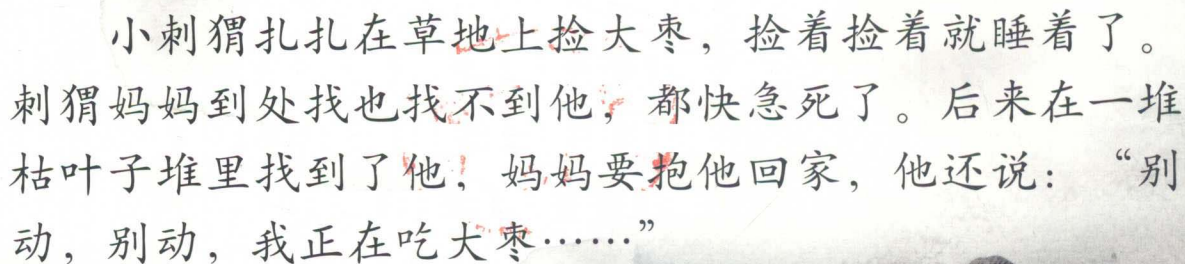 小刺猬扎扎在草地上捡大枣，捡着捡着就睡着了。
刺猬妈妈到处找也找不到他，都快急死了。后来在一堆
枯叶子堆里找到了他，妈妈要抱他回家，他还说：“别
动，别动，我正在吃大枣……”